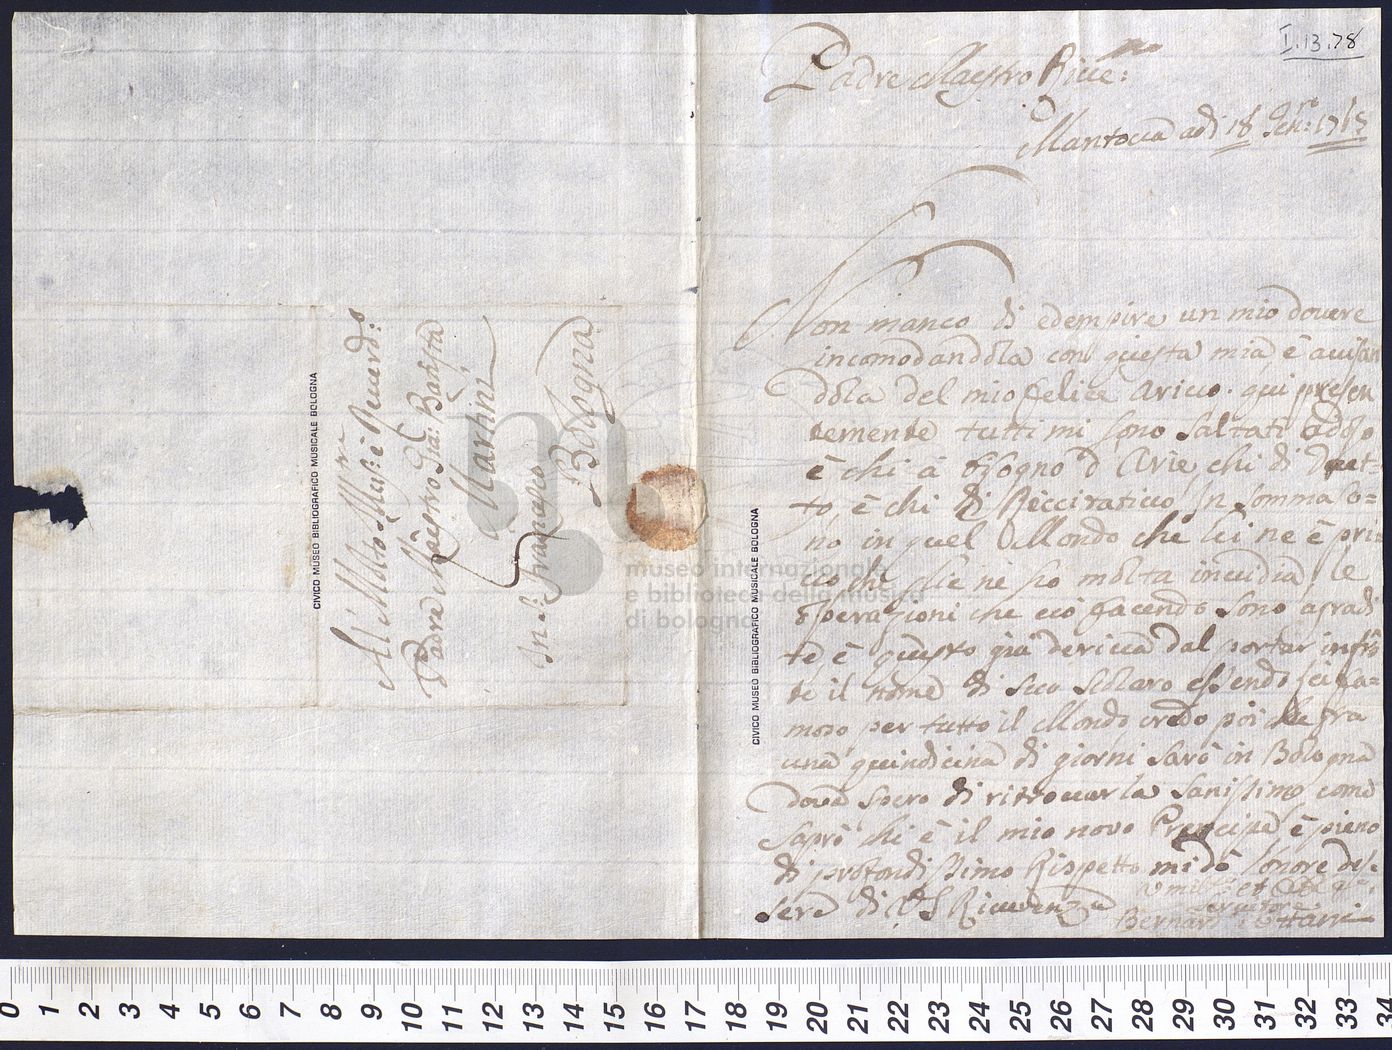 I.13.78
Padre Maestro Rive:mo
Mantova adi 18 Gen:ro 1765
Non manco di edempire un mio dovere
incomodandola con questa mia è avisan
dola del mio felice arivo. qui presen
temente tutti mi sono saltati adoso
è chi à bisogno d Arie chi di Duet-
to, è chi di Reccitativo in somma so=
no in quel Mondo che lei ne è prin
che ne sio molta invidia, le
operazioni che ciò facendo sono agradi
te è questo già deriva dal portar in fron
te il nome di suo scolaro essendo lei fa=
moso per tutto il Mondo credo poi che fra
una quindicina di giorni sarò in Bologna
dove spero di ritrovarla sanissimo come
saprò chi è il mio novo Prencipe è pieno
di profondissimo Rispetto mi dò lonore des
sere di V. S. Riverenza
Umilis: et
servitore
Bernar Ottani
Al Molto Ill:re è Reverd:o
Padre Maestro Gia: Battista
Martini
In S: Francesco
Bologna
CIVICO MUSEO BIBLIOGRAFICO MUSICALE BOLOGNA
CIVICO MUSEO BIBLIOGRAFICO MUSICALE BOLOGNA
museo internazionale
e biblioteca della musica
di bologna
0 1 2 3 4 5 6 7 8 9 10 11 12 13 14 15 16 17 18 19 20 21 22 23 24 25 26 27 28 29 30 31 32 33 34